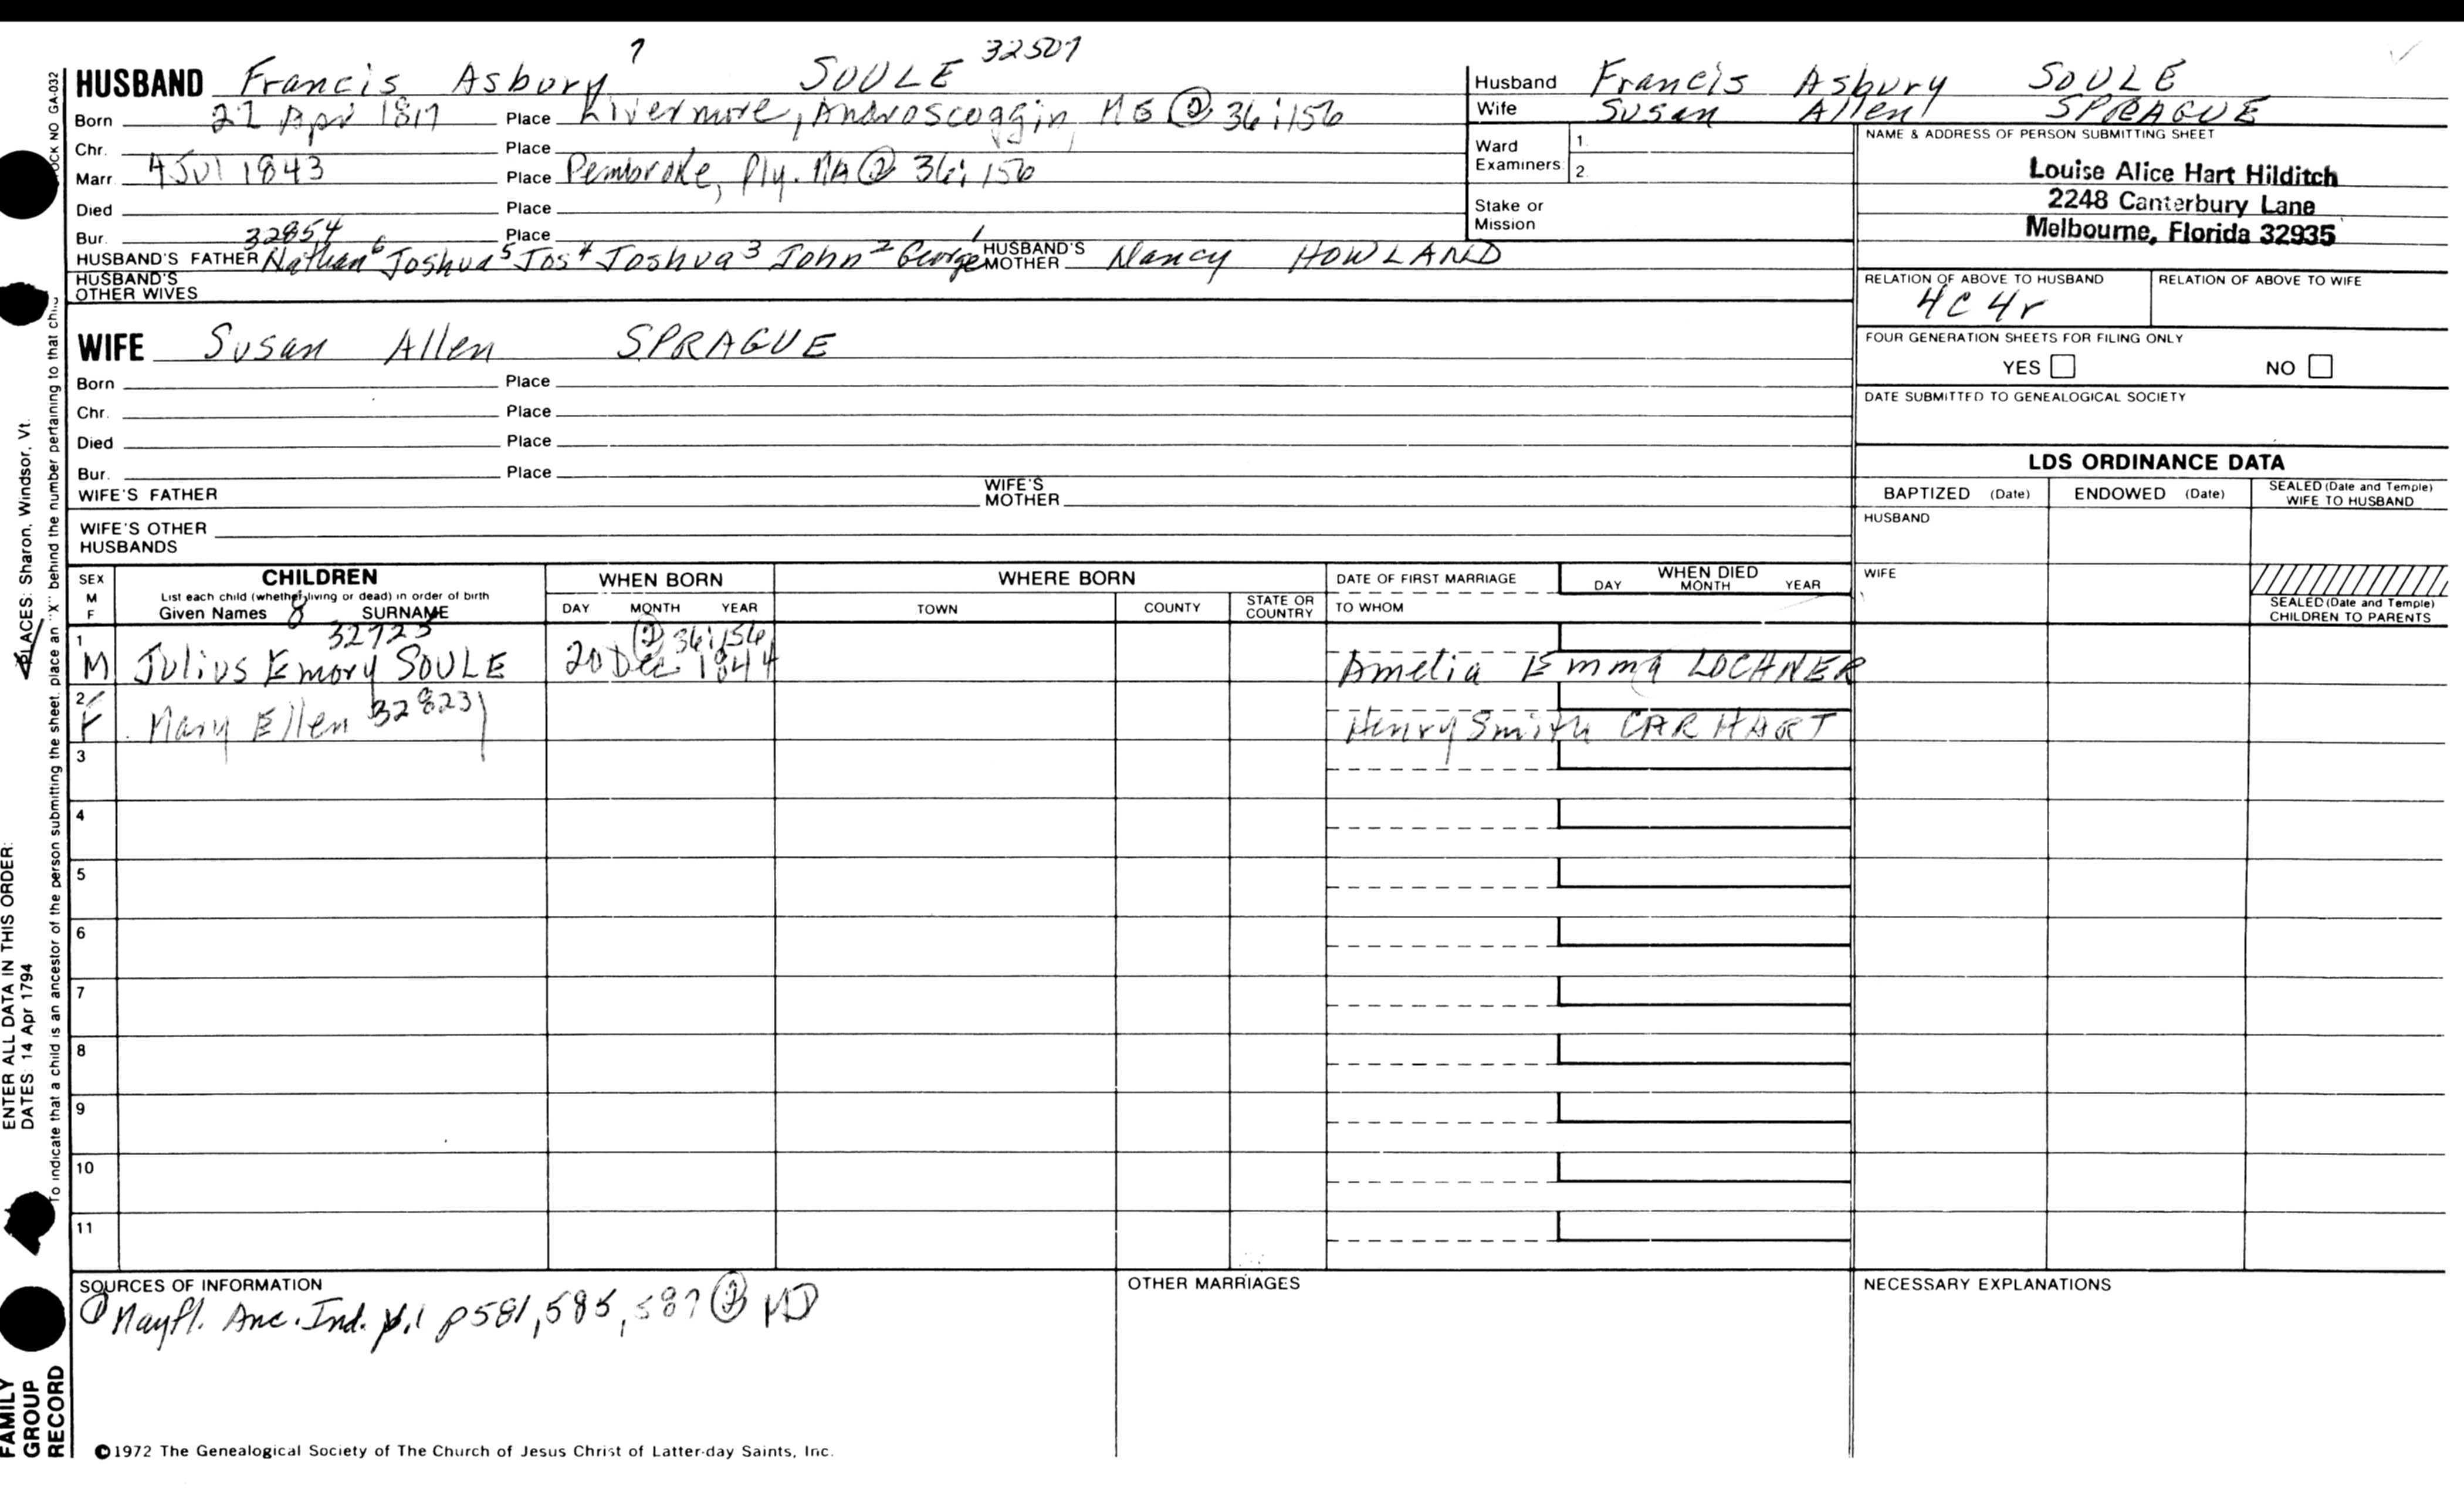 7 32507
HUSBAND Francis Asbury SOULE
Born 27 Apr 1817 Place Livermore, Androscoggin, ME ② 36:156
Chr. Place
Marr 4 Jul 1843 Place Pembroke, Ply. MA ② 36:156
Died Place
Bur. Place
32854
HUSBAND'S FATHER Nathan⁶ Joshua⁵ Jos⁴ Joshua³ John² George¹ HUSBAND'S MOTHER Nancy HOWLAND
HUSBAND'S OTHER WIVES
WIFE Susan Allen SPRAGUE
Born Place
Chr. Place
Died Place
Bur. Place
WIFE'S FATHER WIFE'S MOTHER
WIFE'S OTHER HUSBANDS
Husband Francis Asbury SOULE
Wife Susan Allen SPRAGUE
Ward Examiners: 1. 2.
Stake or Mission
NAME & ADDRESS OF PERSON SUBMITTING SHEET
Louise Alice Hart Hilditch
2248 Canterbury Lane
Melbourne, Florida 32935
RELATION OF ABOVE TO HUSBAND RELATION OF ABOVE TO WIFE
4C 4r
FOUR GENERATION SHEETS FOR FILING ONLY
YES NO
DATE SUBMITTED TO GENEALOGICAL SOCIETY
LDS ORDINANCE DATA
BAPTIZED (Date) ENDOWED (Date) SEALED (Date and Temple) WIFE TO HUSBAND
HUSBAND
WIFE
SEALED (Date and Temple) CHILDREN TO PARENTS
SEX M F
CHILDREN
List each child (whether living or dead) in order of birth
Given Names 8 SURNAME
WHEN BORN
DAY MONTH YEAR
WHERE BORN
TOWN COUNTY STATE OR COUNTRY
DATE OF FIRST MARRIAGE
TO WHOM
WHEN DIED
DAY MONTH YEAR
32723 ② 36:156
1 M Julius Emory SOULE 20 Dec 1844 Amelia Emma LOCHNER
2 F Mary Ellen 32823 Henry Smith CARHART
3
4
5
6
7
8
9
10
11
SOURCES OF INFORMATION
① Mayfl. Anc. Ind. v.1 p581, 585, 587 ② MD
OTHER MARRIAGES
NECESSARY EXPLANATIONS
©1972 The Genealogical Society of The Church of Jesus Christ of Latter-day Saints, Inc.
OCK NO GA-032
To indicate that a child is an ancestor of the person submitting the sheet, place an "X" behind the number pertaining to that
ENTER ALL DATA IN THIS ORDER:
DATES: 14 Apr 1794
PLACES: Sharon, Windsor, Vt.
FAMILY
GROUP
RECORD